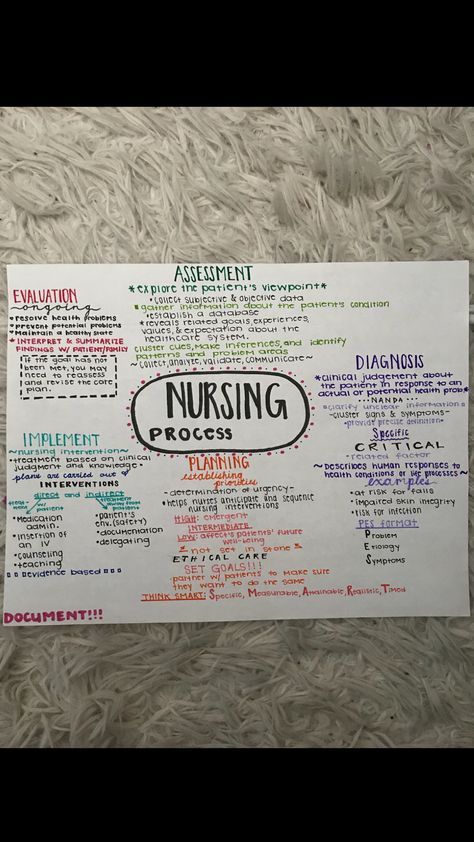 ASSESSMENT
*explore the patient's viewpoint*
*collect subjective & objective data
*gather information about the patient's condition
*establish a database
*reveals related goals, experiences,
values, & expectation about the
healthcare system.
cluster cues, make inferences, and identify
patterns and problem areas
~collect, analyze, validate, communicate~
EVALUATION
~ongoing
*resolve health problems
*prevent potential problems
*Maintain a healthy state
*INTERPRET & SUMMARIZE
FINDINGS W/ PATIENT/FAMILY
If the goal has not
been met, you may
need to reassess
and revise the care
plan.
NURSING
PROCESS
DIAGNOSIS
*clinical judgement about
the patient in response to an
actual or potential health prob
...NANDA...
*clarify unclear information
~cluster signs & symptoms~
*provide precise definition
Specific
CRITICAL
related factor
~Describes human responses to
health conditions or life processes~
examples
*at risk for falls
*impaired skin integrity
*risk for infection
PES format
Problem
Etiology
Symptoms
IMPLEMENT
~nursing intervention~
*treatment based on clinical
judgment and knowledge.
plans are carried out
INTERVENTIONS
direct and indirect
*Medication
admin.
*insertion of
an IV
*counseling
*teaching
*patient's
env. (safety)
*documentation
*delegating
evidence based
PLANNING
establishing
priorities
-determination of urgency-
*helps nurses anticipate and sequence
nursing interventions
HIGH: emergent
INTERMEDIATE
LOW: affect's patients' future
well-being
*not set in stone*
ETHICAL CARE
SET GOALS!!!
partner w/ patients to make sure
they want to do the same
THINK SMART: Specific, Measurable, Attainable, Realistic, Timed
DOCUMENT!!!